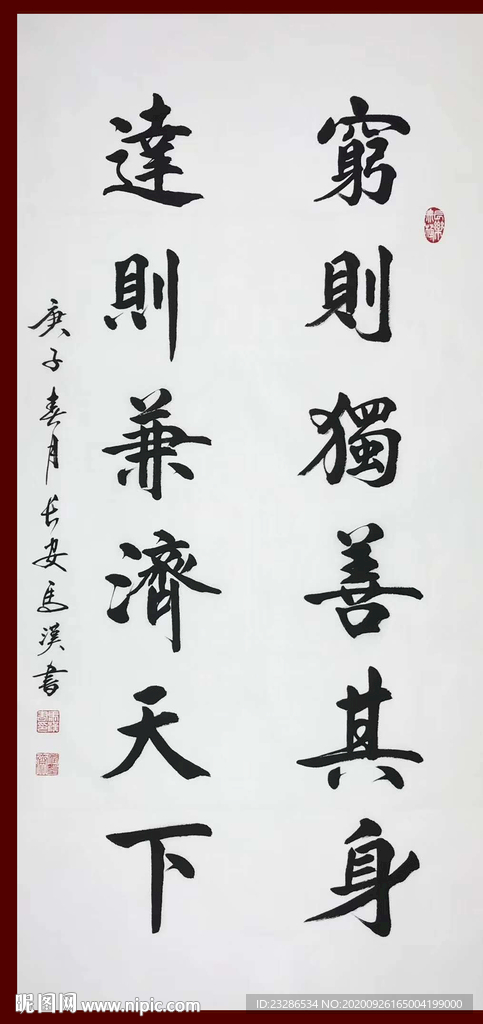 窮則獨善其身
達則兼濟天下
庚子春月長安馬漢書
昵图网 www.nipic.com
ID:23286534 NO:20200926165004199000